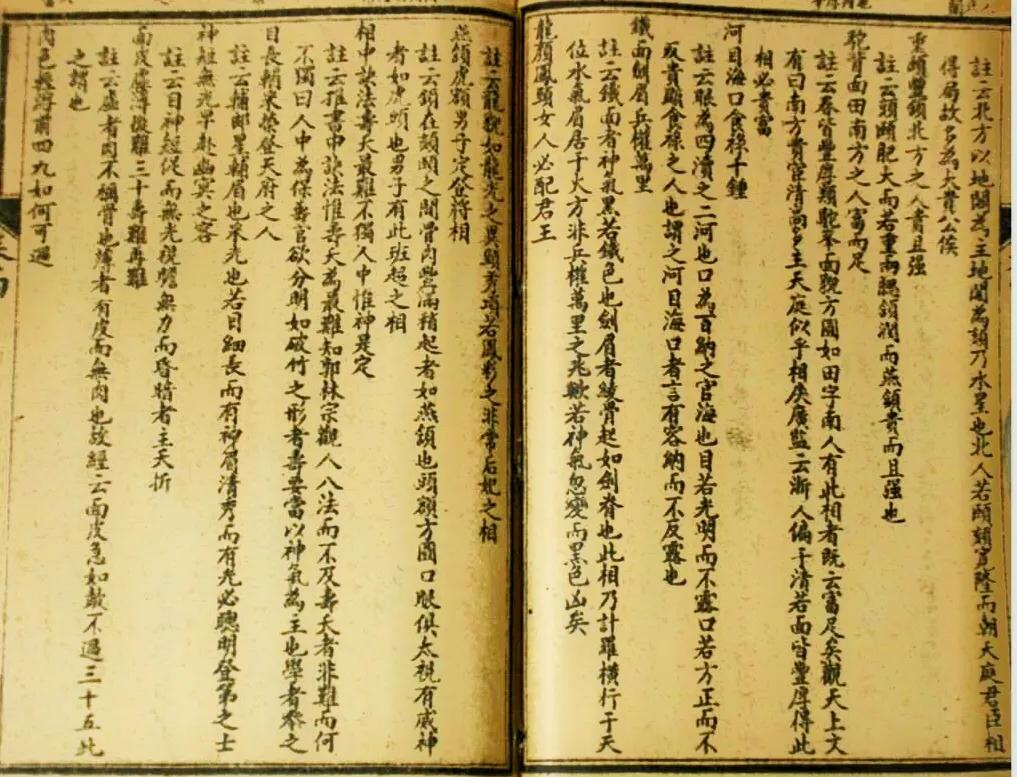 註云北方以地閣為主地閣為頦乃水星也北人若頤頦寬隆而朝天庭君臣相
得局故多為大貴公侯
重頤豐頷北方之人貴且强
註云頭頤肥大而若重兩腮頷潤而燕頷貴而且强也
駝背面田南方之人富而足
註云春皆豐厚類駝峯面貌方圓如田字南人有此相者既云富足矣觀天上文
有曰南方貴宦清高多主天庭似乎相矣廣鑑云浙人偏于清若面皆豐厚得此
相必貴富
河目海口食祿千鍾
註云眼為四瀆之二河也口為百納之官海也目若光明而不露口若方正而不
反貴顯食祿之人也謂之河目海口者言有容納而不反露也
鐵面劍眉兵權萬里
註云鐵面者神氣黑若鐵色也劍眉者綾骨起如劍脊也此相乃計羅橫行于天
位水氣眉居于火方非兵權萬里之兆歟若神氣忽變而黑色凶矣
龍顏鳳頸女人必配君王
註云龍貌如龍光之異頸秀項若鳳彩之非常后妃之相
燕頷虎額男子定登將相
註云頷在頦頤之間骨肉豐滿稍起者如燕頷也頭額方圓口眼俱太視有威神
者如虎頭也男子有此班超之相
相中訣法壽夭最難不獨人中惟神是定
註云推書中訣法惟壽夭為最難知郭林宗觀人八法而不及壽夭者非難而何
不獨曰人中為保壽官欲分明如破竹之形者壽要當以神氣為主也學者參之
目長輔采榮登天府之人
註云輔即星輔眉也采光也若目細長而有神眉清秀而有光必聰明登第之士
神短無光早赴幽冥之客
註云目神短促而無光視瞻無力而昏暗者主夭折
面皮虛薄後難三十壽難再難
註云虛者肉不稱骨也薄者有皮而無肉也故經云面皮急如鼓不過三十五此
之謂也
肉色輕浮前四九如何可過